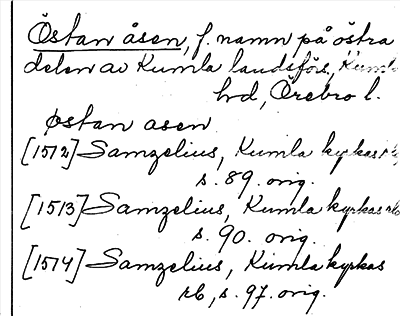 Östan åsen, f. namn på östra
delen av Kumla landsförs, Kumla
hd, Örebro l.
østan asen
[1512] Samzelius, Kumla kyrkas rb
s. 89. orig.
[1513] Samzelius, Kumla kyrkas rb
s. 90. orig.
[1514] Samzelius, Kumla kyrkas
rb, s. 97. orig.